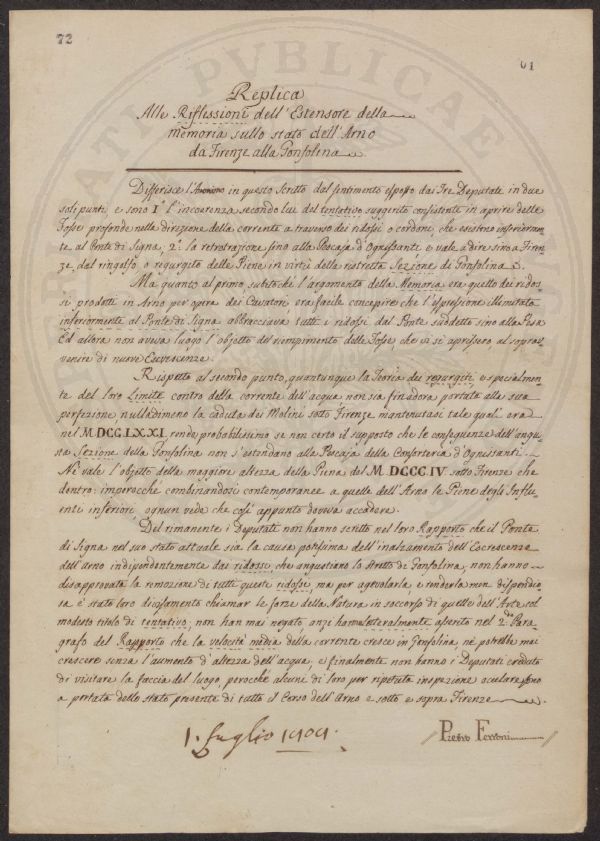 72
61
Replica
Alle Riflessioni dell'Estensore della
memoria sullo stato dell'Arno
da Firenze alla Gonfolina
Differisce l'Anonimo in questo Scritto dal sentimento esposto dai Tre Deputati in due
soli punti, e sono 1.° l'incoerenza secondo lui del tentativo suggerito consistente in aprire delle
Fosse profonde nella direzione della corrente a traverso dei ridossi o cordoni, che esistono inferiormen-
te al Ponte di Signa; 2.° la retrotrazione fino alla Pescaja d'Ognissanti, e vale a dire sino a Firen-
ze, del ringolfo, o regurgito delle Piene in virtù della ristretta Sezione di Gonfolina.
Ma quanto al primo subito che l'argomento della Memoria era quello dei ridos-
si prodotti in Arno per opera dei Cavatori, era facile concepire che l'espressione illimitata
inferiormente al Ponte di Signa abbracciava tutti i ridossi dal Ponte suddetto sino alla Posa
Ed allora non aveva luogo l'objetto del riempimento delle Fosse che vi si aprissero al soprav-
venire di nuove Escrescenze.
Rispetto al secondo punto, quantunque la Teoria dei regurgiti, e specialmen-
te del loro Limite contro della corrente dell'acque, non sia finadora portata alla sua
perfezione, nulladimeno la caduta dei Molini sotto Firenze mantenutasi tale qual' era
nel MDCCLXXI, rende probabilissimo se non certo il supposto che le conseguenze dell'angu-
sta Sezione della Gonfolina non s'estendano alla Pescaja della Conserteria d'Ognisanti.
Nè vale l'objetto della maggiore altezza della Piena del MDCCCIV sotto Firenze che
dentro: imperocchè combinandosi contemporanee a quelle dell'Arno le Piene degli Influ-
enti inferiori ognun vede che così appunto doveva accadere.
Del rimanente i Deputati non hanno scritto nel loro Rapporto che il Ponte
di Signa nel suo stato attuale sia la causa potissima dell'inalzamento dell'Escrescenze
dell'Arno indipendentemente dai ridossi, che angustiano lo stretto di Gonfolina, non hanno
disapprovata la remozione di tutti questi ridossi, ma per agevolarla, e renderla men dispendio-
sa è stato loro divisamento chiamar le forze della Natura in soccorso di quelle dell'Arte col
modesto titolo di tentativo, non han mai negato, anzi hanno letteralmente asserito nel 2.do Para-
grafo del Rapporto che la velocità media della corrente cresce in Gonfolina, nè potrebbe mai
crescere senza l'aumento d'altezza dell'acqua, e finalmente non hanno i Deputati creduto
di visitare la faccia del luogo, perocchè alcuni di loro per ripetuta inspezione oculare sono
a portata dello stato presente di tutto il Corso dell'Arno e sotto e sopra Firenze.
1. Luglio 1809.
Pietro Ferroni